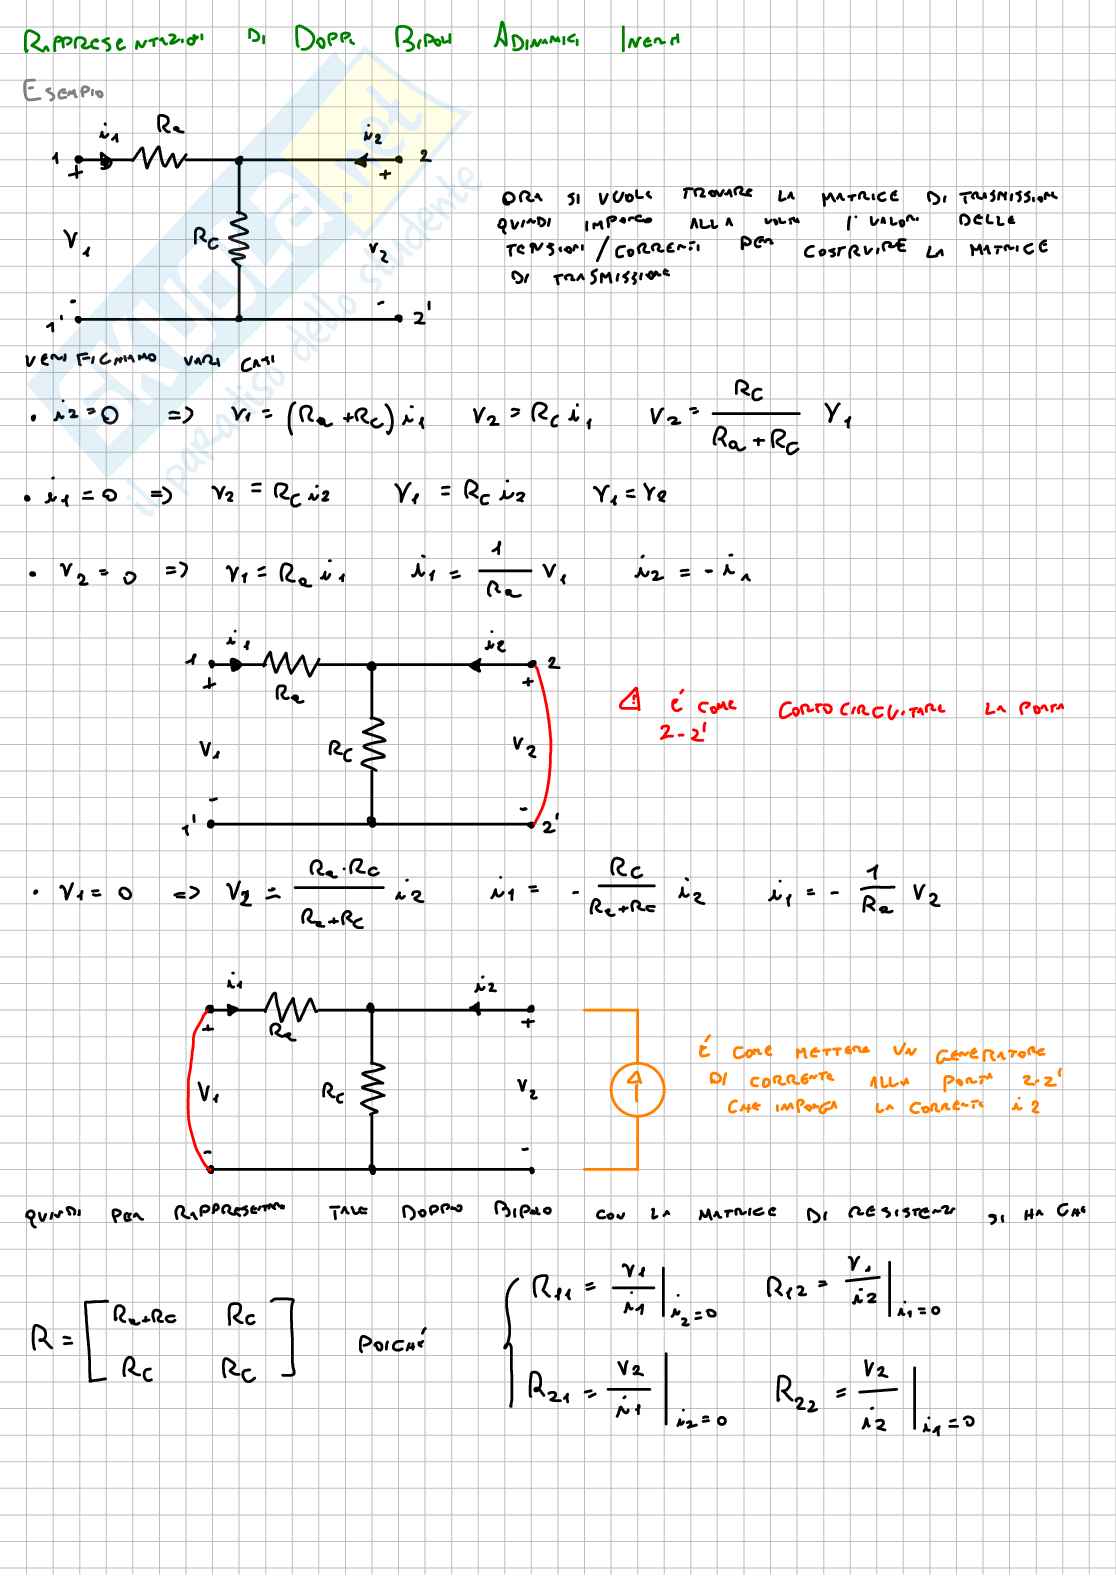 RAPPRESENTAZIONI DI DOPPI BIPOLI ADINAMICI INERTI
ESEMPIO
i1 Ra i2
1 + + 2
V1 RC V2
1' - - 2'
ORA SI VUOLE TROVARE LA MATRICE DI TRASMISSIONE
QUINDI IMPONGO ALLA VOLTA I VALORI DELLE
TENSIONI / CORRENTI PER COSTRUIRE LA MATRICE
DI TRASMISSIONE
VERIFICHIAMO VARI CASI
• i2 = 0 => V1 = (Ra + RC) i1 V2 = RC i1 V2 = RC / (Ra + RC) V1
• i1 = 0 => V2 = RC i2 V1 = RC i2 V1 = V2
• V2 = 0 => V1 = Ra i1 i1 = 1/Ra V1 i2 = - i1
i1 i2
1 + Ra + 2
V1 RC V2
1' - - 2'
⚠ É COME CORTOCIRCUITARE LA PORTA
2-2'
• V1 = 0 => V2 = Ra · RC / (Ra + RC) i2 i1 = - RC / (Ra + RC) i2 i1 = - 1/Ra V2
i1 i2
+ Ra +
V1 RC V2
- -
É COME METTERE UN GENERATORE
DI CORRENTE ALLA PORTA 2-2'
CHE IMPONGA LA CORRENTE i2
QUINDI PER RAPPRESENTARE TALE DOPPIO BIPOLO CON LA MATRICE DI RESISTENZE SI HA CHE
R = [ Ra+RC RC
RC RC ]
POICHÉ
{ R11 = V1/i1 | i2=0 R12 = V1/i2 | i1=0
R21 = V2/i1 | i2=0 R22 = V2/i2 | i1=0
SKUOLA.net
il paradiso dello studente